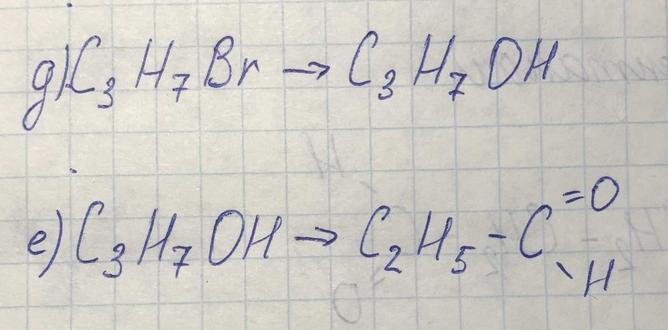 д) C₃H₇Br → C₃H₇OH
е) C₃H₇OH → C₂H₅-C=O
\H